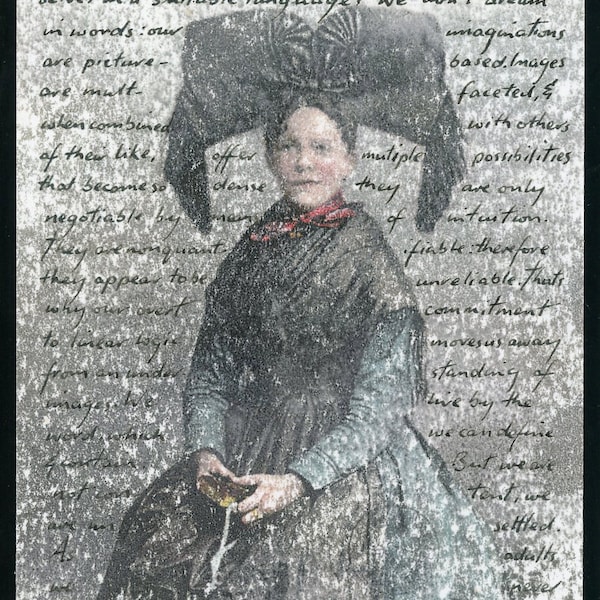 in a suitable language? We don't dream
in words: our imaginations
are picture- based. Images
are mult- faceted, &
when combined with others
of their like, offer mutiple possibilities
that become so dense they are only
negotiable by means of intuition.
They are nonquant- .fiable: therefore
they appear to be unreliable. Thats
why our overt commitment
to linear logic moves us away
from an under standing of
images. We live by the
word, which we can define
& contain. But we are
not con tent, we
are un settled.
As adults
we never